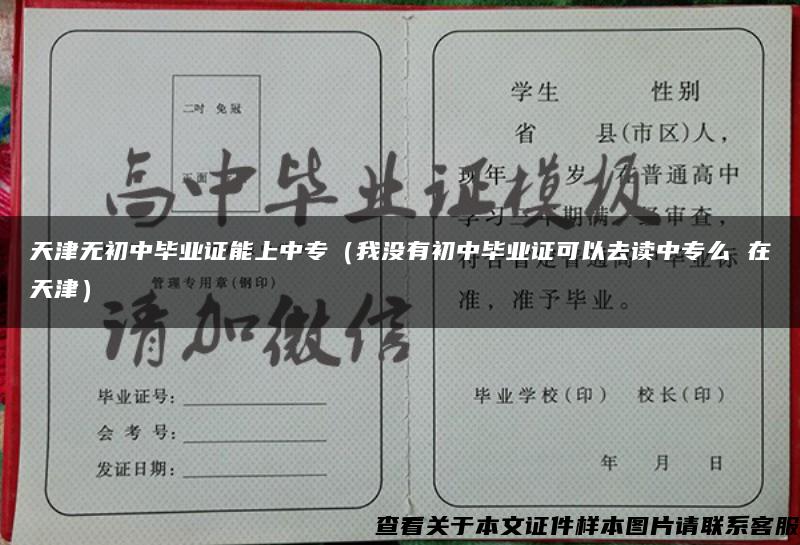 学生 性别
二吋 免冠
省 县(市区)人，
正面
高中毕业证模板
现年 岁，在普通高中
天津无初中毕业证能上中专（我没有初中毕业证可以去读中专么 在
天津）
管理专用章(钢印)
准，准予毕业。
请加微信
毕业证号：
毕业学校(印) 校长(印)
会考号：
发证日期：
年 月 日
查看关于本文证件样本图片请联系客服